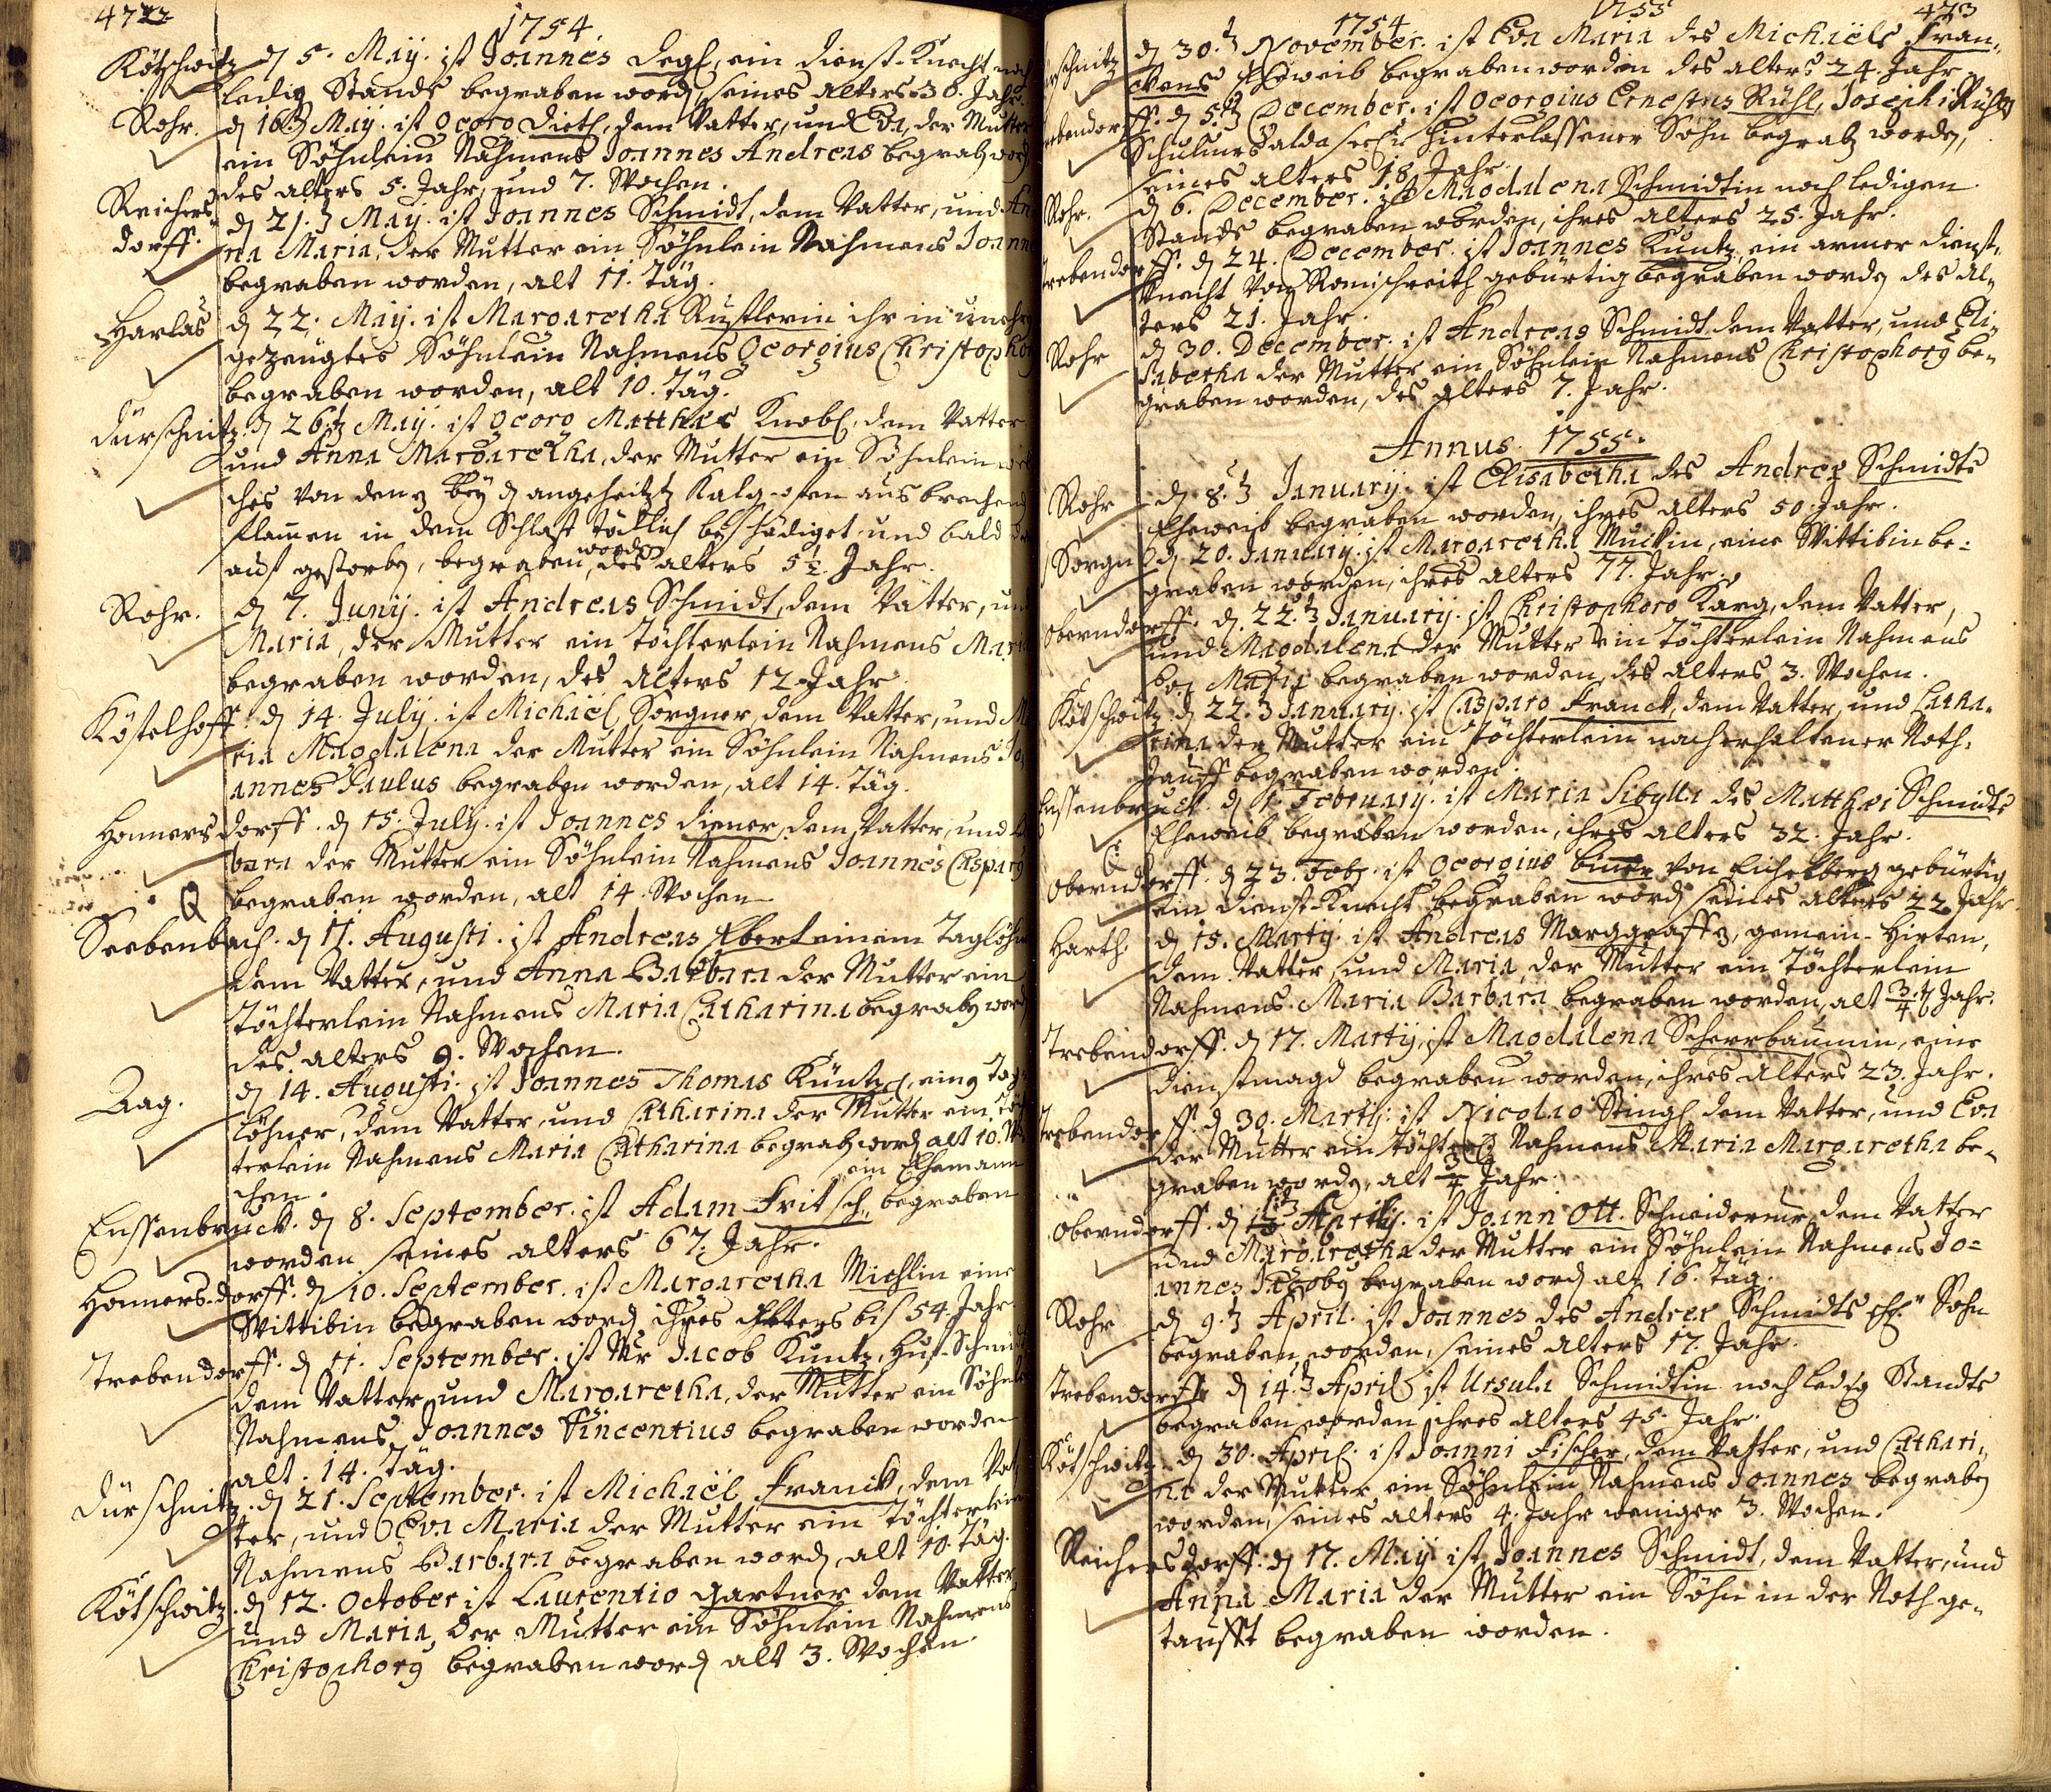 472
1754.
Kötschwitz. d 5. Maÿ. ist Joannes Degl, ein Dienst-Knecht noch
ledig Stands begraben word, seines alters 30. Jahr.
Rohr. d 16.t Maÿ. ist Georg Dietl, dem Vatter, und Eva, der Mutter
ein Söhnlein Nahmens Joannes Andreas begrab word
des alters 5. Jahr, und 7. Wochen.
Reichers-
dorff. d 21.t Maÿ. ist Joannes Schmidt, dem Vatter, und An
na Maria, der Mutter ein Söhnlein Nahmens Joanne
begraben worden, alt 11. Täg.
Harlas d 22. Maÿ. ist Margaretha Rustlerin ihr in unehr
gezeugtes Söhnlein Nahmens Georgius Christophor
begraben worden, alt 10. Täg.
Dürschnitz. d 26.t Maÿ. ist Georg Matthäs Knobl, dem Vatter
und Anna Margaretha, der Mutter ein Söhnlein wel
ches von den beÿ d angeheitzt Kalg-ofen ausbrechend
Flamen in dem Schlaff tödtlich beschädiget und bald dar
auf gestorb, begraben worden, des alters 5 1/2. Jahr.
Rohr. d 7. Junÿ. ist Andreas Schmidt, dem Vatter, und
Maria, der Mutter ein Töchterlein Nahmens Maria
begraben worden, des alters 12 Jahr.
Köstelhoff. d 14. Julÿ. ist Michäel Sorgner, dem Vatter, und Ma
ria Magdalena der Mutter ein Söhnlein Nahmens Jo
annes Paulus begraben worden, alt 14. Täg.
Honnersdorff. d 15. Julÿ. ist Joannes Diener, dem Vatter, und
bara der Mutter ein Söhnlein Nahmens Joannes Caspar9
begraben worden, alt 14. Wochen
Seebenbach. d 11. Augusti. ist Andreas Ebert einem Taglöhn
dem Vatter, und Anna Barbara der Mutter ein
Töchterlein Nahmens Maria Catharina begrab word
des alters 9. Wochen.
Aag. d 14. Augusti. ist Joannes Thomas Küntzl, ein Tag-
löhner, dem Vatter, und Catharina der Mutter ein Töch
terlein Nahmens Maria Catharina begrab word alt 10. Wo
chen.
ein Ehemann
Enssenbruck. d 8. September. ist Adam Fritsch, begraben
worden seines alters 67. Jahr.
Honnersdorff. d 10. September. ist Margaretha Michlin eine
Wittibin begraben word ihres Alters bis 54. Jahr.
Trebendorff. d 11. September. ist Mr Jacob Kuntz, Huf-Schmidt
dem Vatter und Margaretha, der Mutter ein Söhnl
Nahmens Joannes Vincentius begraben worden
alt. 14. Täg.
Dürschnitz. d 21. September. ist Michäel Franck, dem Vat
ter, und Eva Maria der Mutter ein Töchterlein
Nahmens Barbara begraben word, alt 10. Täg.
Kötschwitz. d 12. October ist Laurentio Gartner dem Vatter
und Maria, der Mutter ein Söhnlein Nahmens
Christophor9 begraben word alt 3. Wochen.
1754 1755 473
rschnitz d 30.t November. ist Eva Maria des Michäels Fran-
ckens Eheweib begraben worden des alters 24. Jahr
ebendorff. d 5.t December. ist Georgius Ernestus Rühl, Josephi Rühls
Schulmrs alda seel: hinterlassener Sohn begrab worden,
seines alters 18. Jahr.
Rohr. d 6. December. ist Magdalena Schmidtin noch ledigen
Stands begraben worden, ihres alters 25. Jahr.
Trebendorff. d 24. December. ist Joannes Kuntz, ein armer Dienst-
Knecht von Romischreith gebürtig begraben worden des al-
ters 21. Jahr.
Rohr d 30. December. ist Andreas Schmidt dem Vatter, und Eli-
sabetha der Mutter ein Söhnlein Nahmens Christophor9 be-
graben worden, des alters 7. Jahr.
Annus 1755.
Rohr d 8.t Januarÿ. ist Elisabetha des Andreæ Schmidts
Eheweib begraben worden, ihres alters 50. Jahr.
Sorgn d 20. Januarÿ. ist Margaretha Muckin, eine Wittibin be-
graben worden, ihres alters 77. Jahr.
Oberndorff. d. 22.t Januarÿ. ist Christophoro Karg, dem Vatter,
und Magdalena der Mutter ein Töchterlein Nahmens
begraben worden, des alters 3. Wochen.
Kötschwitz. d 22.t Januarÿ. ist Casparo Franck, dem Vatter, und Catha-
rina der Mutter ein Töchterlein nach erhaltener Noth-
Tauff begraben worden.
Enssenbruck. d 1. Februarÿ. ist Maria Sibylla des Matthæi Schmidts
Eheweib begraben worden, ihres alters 32. Jahr.
Oberndorff. d 23. Feb. ist Georgius Biner von Eichelberg gebürtig
ein Dienst-Knecht begraben word seines alters 22 Jahr.
Harth. d 15. Martÿ. ist Andreas Marggraff, gemein-Hirten,
dem Vatter, und Maria, der Mutter ein Töchterlein
Nahmens Maria Barbara begraben worden, alt 3/4 Jahr.
Trebendorff. d 17. Martÿ, ist Magdalena Scherrbaumin, eine
Dienstmagd begraben worden, ihres alters 23. Jahr.
Trebendorff. d 30. Martÿ. ist Nicolao Stingl dem Vatter, und Eva
der Mutter ein Töchterl Nahmens Maria Margaretha be-
graben worden, alt 3/4 Jahr.
Oberndorff. d Aprilis. ist Joann Ott. Schneider dem Vatter
und Margaretha der Mutter ein Söhnlein Nahmens Jo-
annes Jacob9 begraben word alt 16. Täg.
Rohr d 9.t April. ist Joannes des Andreæ Schmidts ehl. Sohn
begraben worden, seines alters 17. Jahr.
Trebendorff d 14.t April ist Ursula Schmidtin noch ledig Standts
begraben worden ihres alters 45. Jahr.
Kötschwitz. d 30. April. ist Joanni Fischer, dem Vatter, und Cathari-
na der Mutter ein Söhnlein Nahmens Joannes begraben
worden, seines alters 4. Jahr weniger 3. Wochen.
Reichersdorff. d 17. Maÿ ist Joannes Schmidt, dem Vatter, und
Anna Maria der Mutter ein Söhn in der Noth ge-
taufft begraben worden.